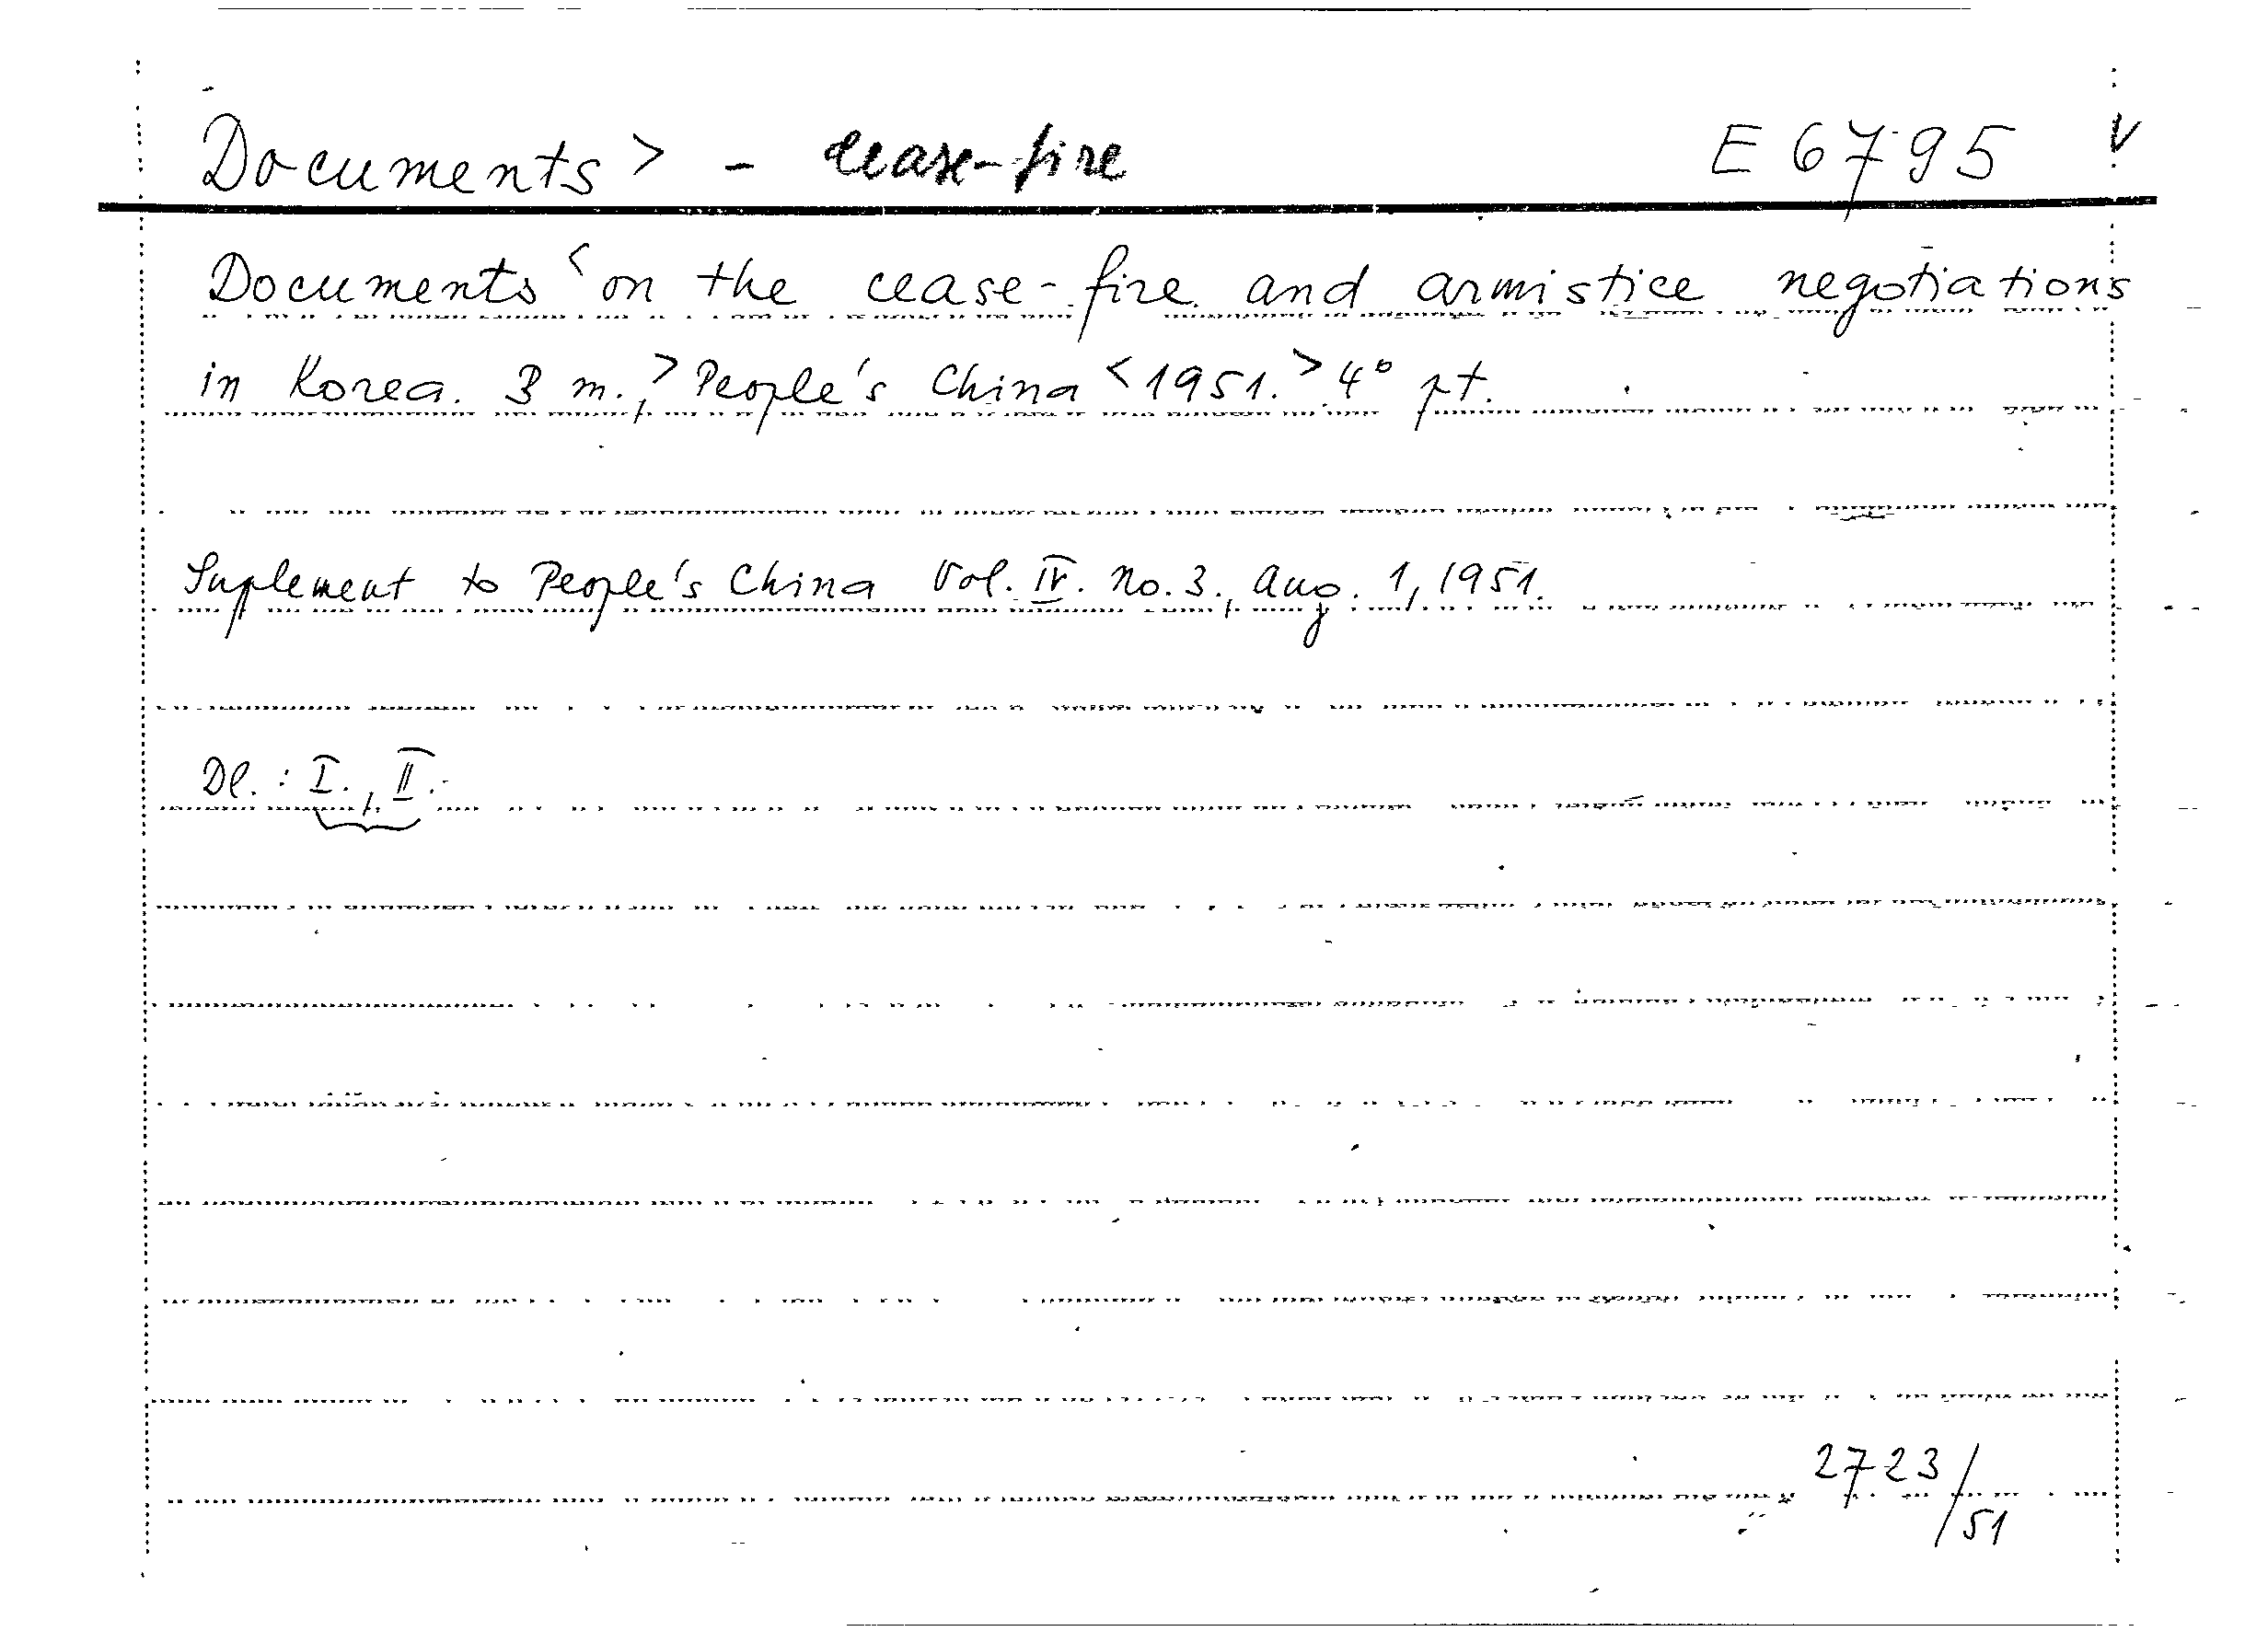 Documents > - cease-fire E 6795 V
Documents < on the cease-fire and armistice negotiations
in Korea. 3 m., > People's China < 1951. > 4° pt.
Suplement to People's China Vol. IV. No. 3., Aug. 1, 1951.
Dl. : I., II.
2723/51